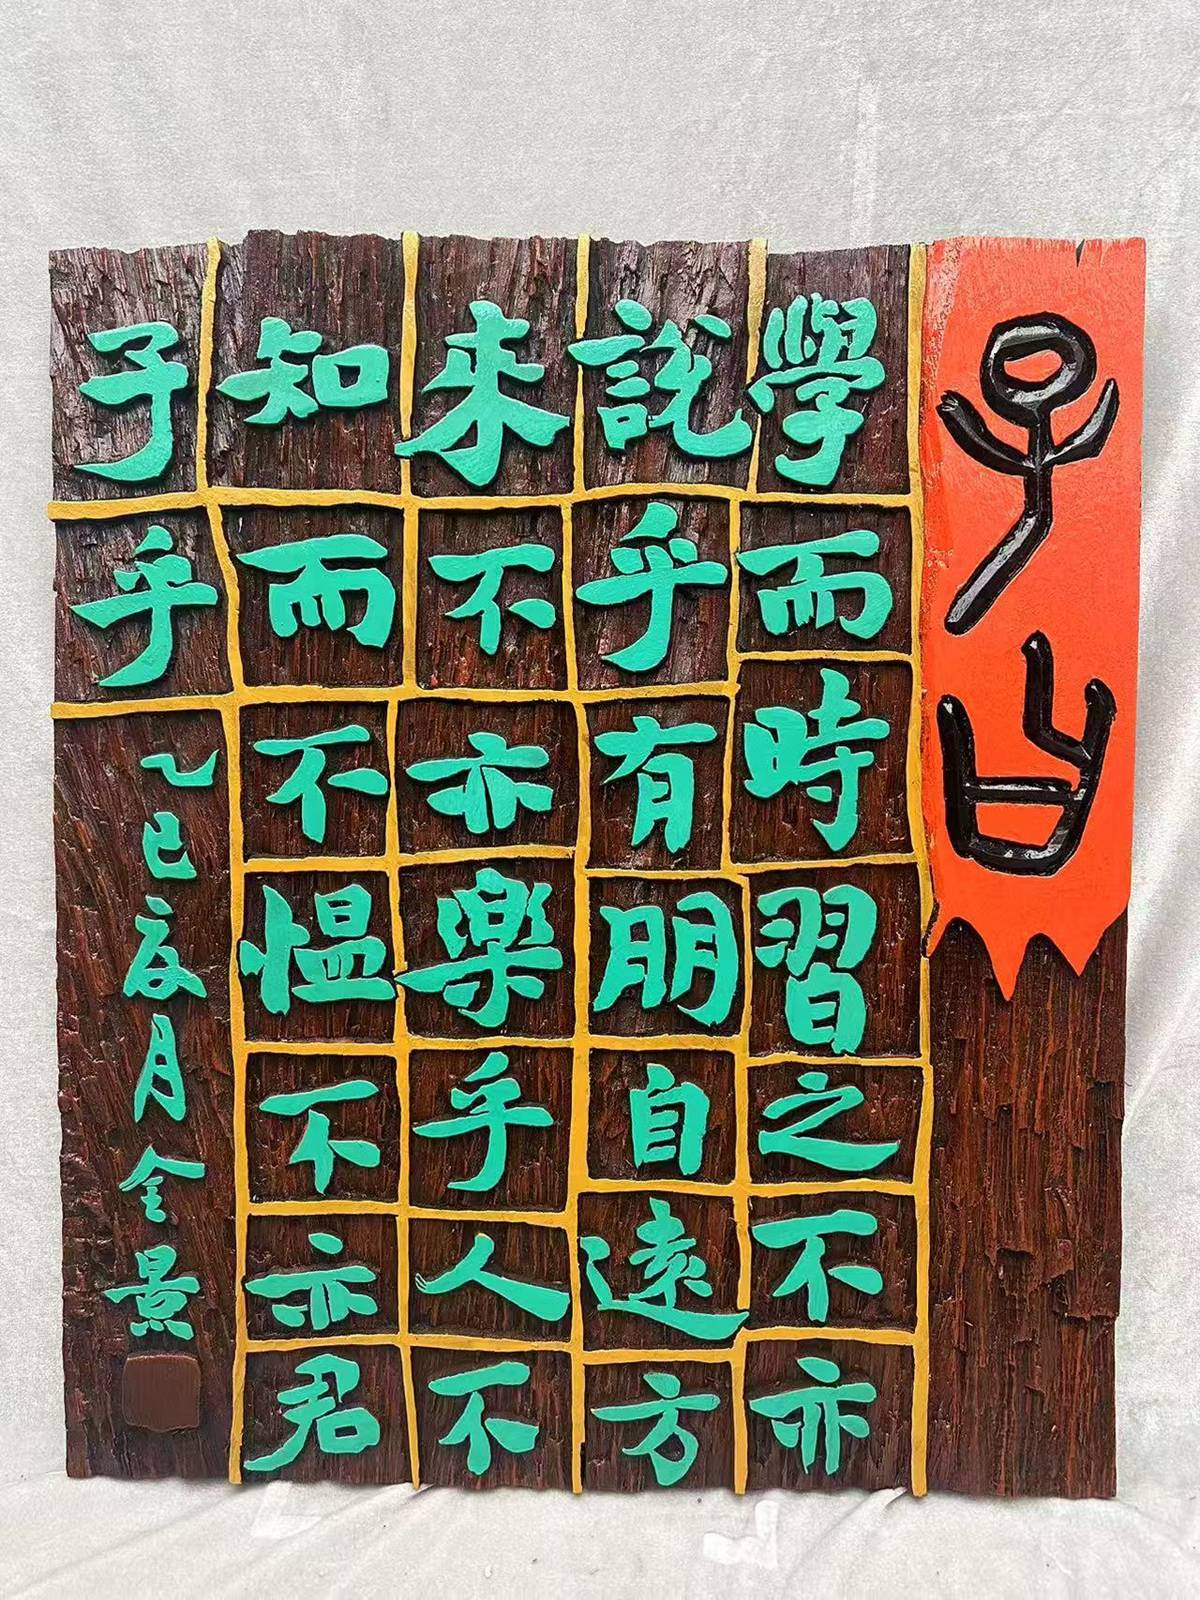 子曰
學而時習之不亦
説乎有朋自遠方
來不亦樂乎人不
知而不愠不亦君
子乎
乙巳辰月全景